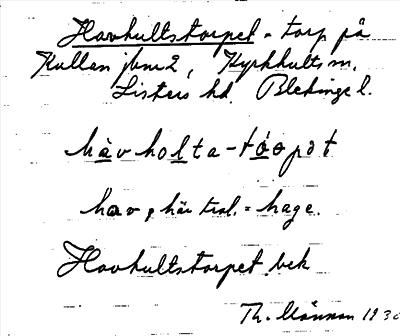 Havhultstorpet - torp på
Kullen jbnr 2, Kyrkhults sn.
Listers hd. Blekinge l.
hàv holta-tóorpət
hav, här trol. = hage.
Havhultstorpet bek
Th. 193